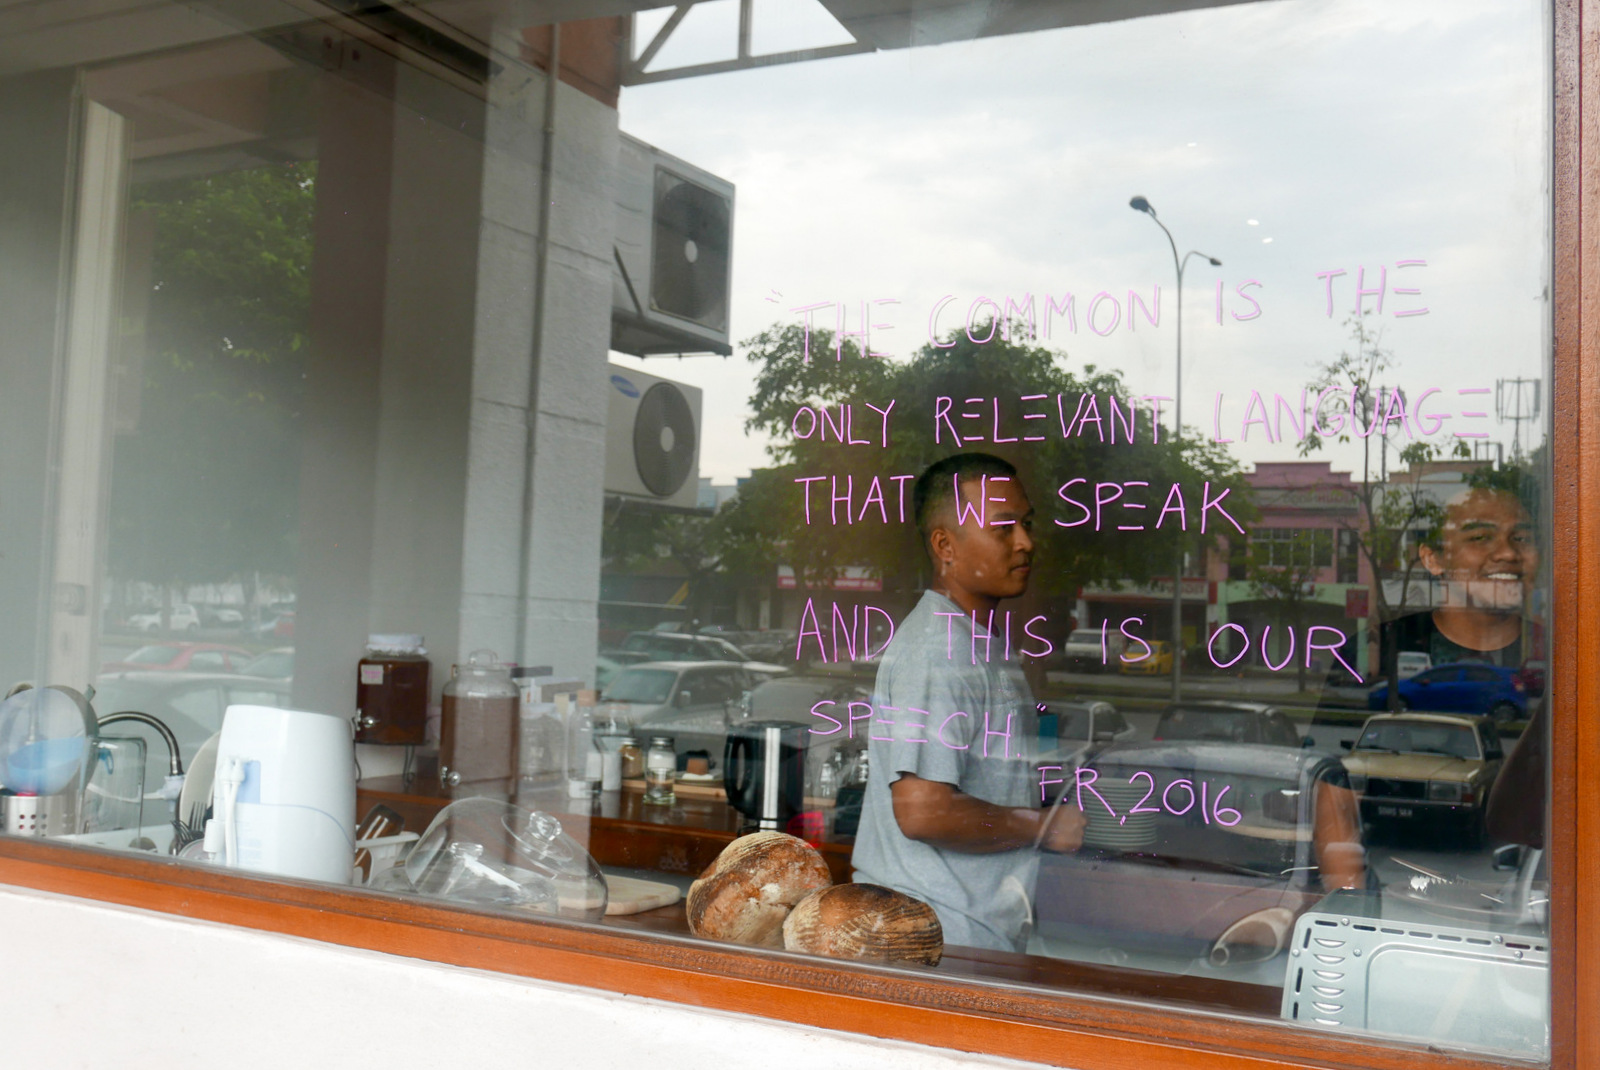 "THE COMMON IS THE
ONLY RELEVANT LANGUAGE
THAT WE SPEAK
AND THIS IS OUR
SPEECH."
F.R, 2016